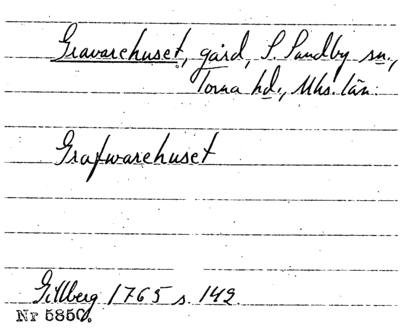 Gravarehuset, gård, S. Sandby sn.,
Torna hd., Mhs. län.
Grafwarehuset
Gillberg 1765 s. 149.
Nr 5850.